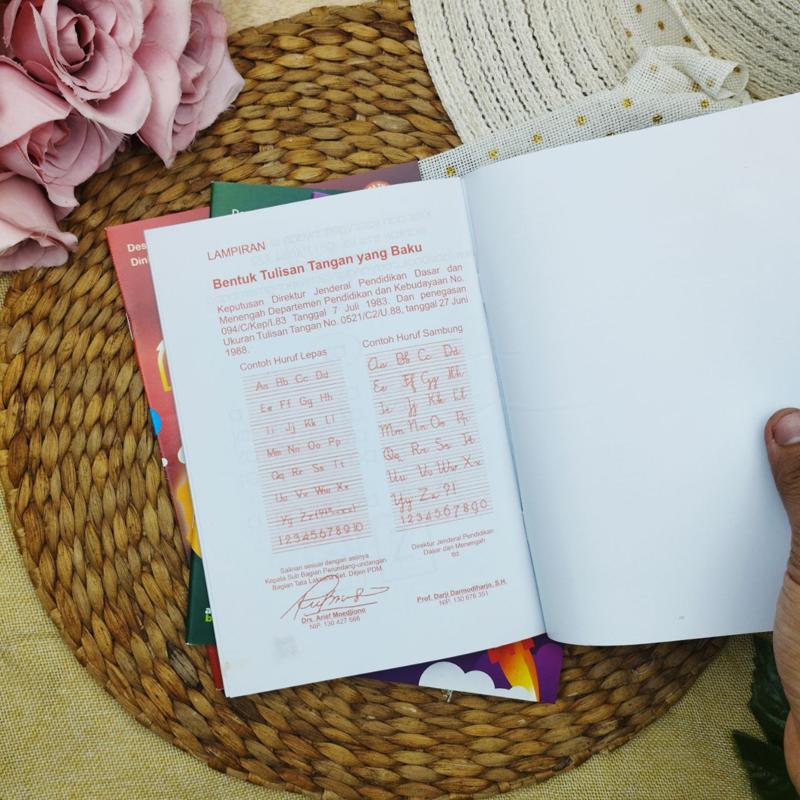 Des
Din
LAMPIRAN
Bentuk Tulisan Tangan yang Baku
Keputusan Direktur Jenderal Pendidikan Dasar dan
Menengah Departemen Pendidikan dan Kebudayaan No.
094/C/Kep/I.83 Tanggal 7 Juli 1983. Dan penegasan
Ukuran Tulisan Tangan No. 0521/C2/U.88, tanggal 27 Juni
1988.
Contoh Huruf Lepas
Aa Bb Cc Dd
Ee Ff Gg Hh
Ii Jj Kk Ll
Mm Nn Oo Pp
Qq Rr Ss Tt
Uu Vv Ww Xx
Yy Zz
12345678910
Contoh Huruf Sambung
Aa Bb Cc Dd
Ee Ff Gg Hh
Ii Jj Kk Ll
Mm Nn Oo Pp
Qq Rr Ss Tt
Uu Vv Ww Xx
Yy Zz ?!
1234567890
Salinan sesuai dengan aslinya
Kepala Sub Bagian Perundang-undangan
Bagian Tata Laksana Set. Ditjen PDM
Drs. Arief Moedjiono
NIP. 130 427 566
Direktur Jenderal Pendidikan
Dasar dan Menengah
ttd
Prof. Darji Darmodiharjo, S.H.
NIP. 130 676 351